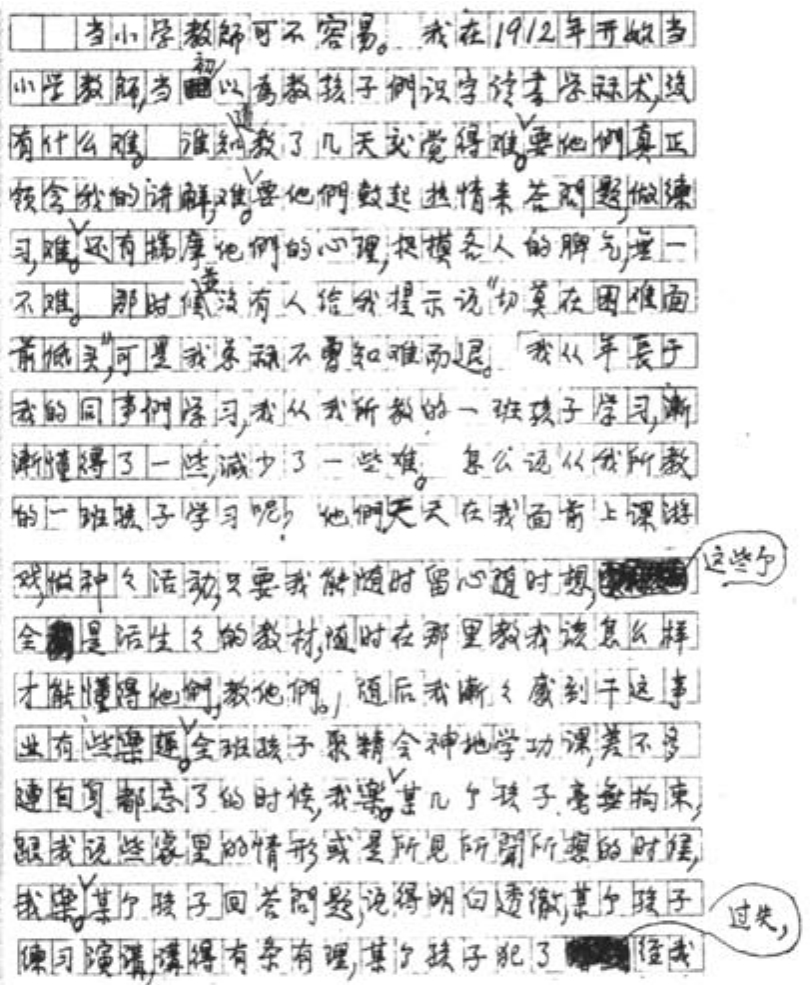 当小学教师可不容易。我在1912年开始当
小学教师,当初以为教孩子們识字读书学算术,没
有什么难。谁知道教了几天就觉得难。要他們真正
领会我的讲解,难。要他們鼓起热情来答問题,做練
习,难。还有揣摩他們的心理,捉摸各人的脾气,無一
不难。那时候並没有人给我提示说“切莫在困难面
前低头”,可是我总算不曾知难而退。我从年長于
我的同事們学习,我从我所教的一班孩子学习,漸
漸懂得了一些,減少了一些难。怎么说从我所教
的一班孩子学习呢?他們天天在我面前上课游
戏,做种々活动,只要我能随时留心随时想,这些个
全是活生々的教材,随时在那里教我该怎么样
才能懂得他們,教他們。随后我漸々感到干这事
业有些樂趣。全班孩子聚精会神地学功课,差不多
連自身都忘了的时候,我樂。某几个孩子毫無拘束,
跟我说些家里的情形或是所見所聞所想的时候,
我樂。某个孩子回答問题,说得明白透徹,某个孩子
練习演講,講得有条有理,某个孩子犯了过失,经我